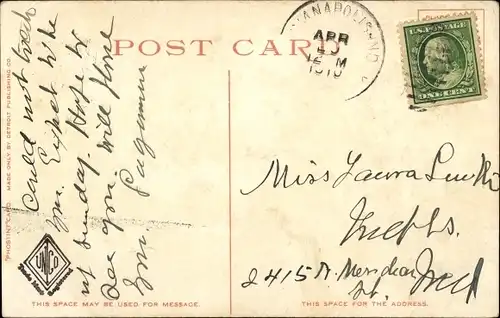 POST CARD
INDIANAPOLIS, IND.
APR
12 M
1910
U.S. POSTAGE
ONE CENT
PHOSTINT CARD. MADE ONLY BY DETROIT PUBLISHING CO.
Could not reach
you. Expect to be
at Sunday. Hope to
see you. Will phone
Jm
THIS SPACE MAY BE USED FOR MESSAGE.
Miss Laura
Indpls.
2415 N. Meridian
St. Ind
THIS SPACE IS FOR THE ADDRESS.